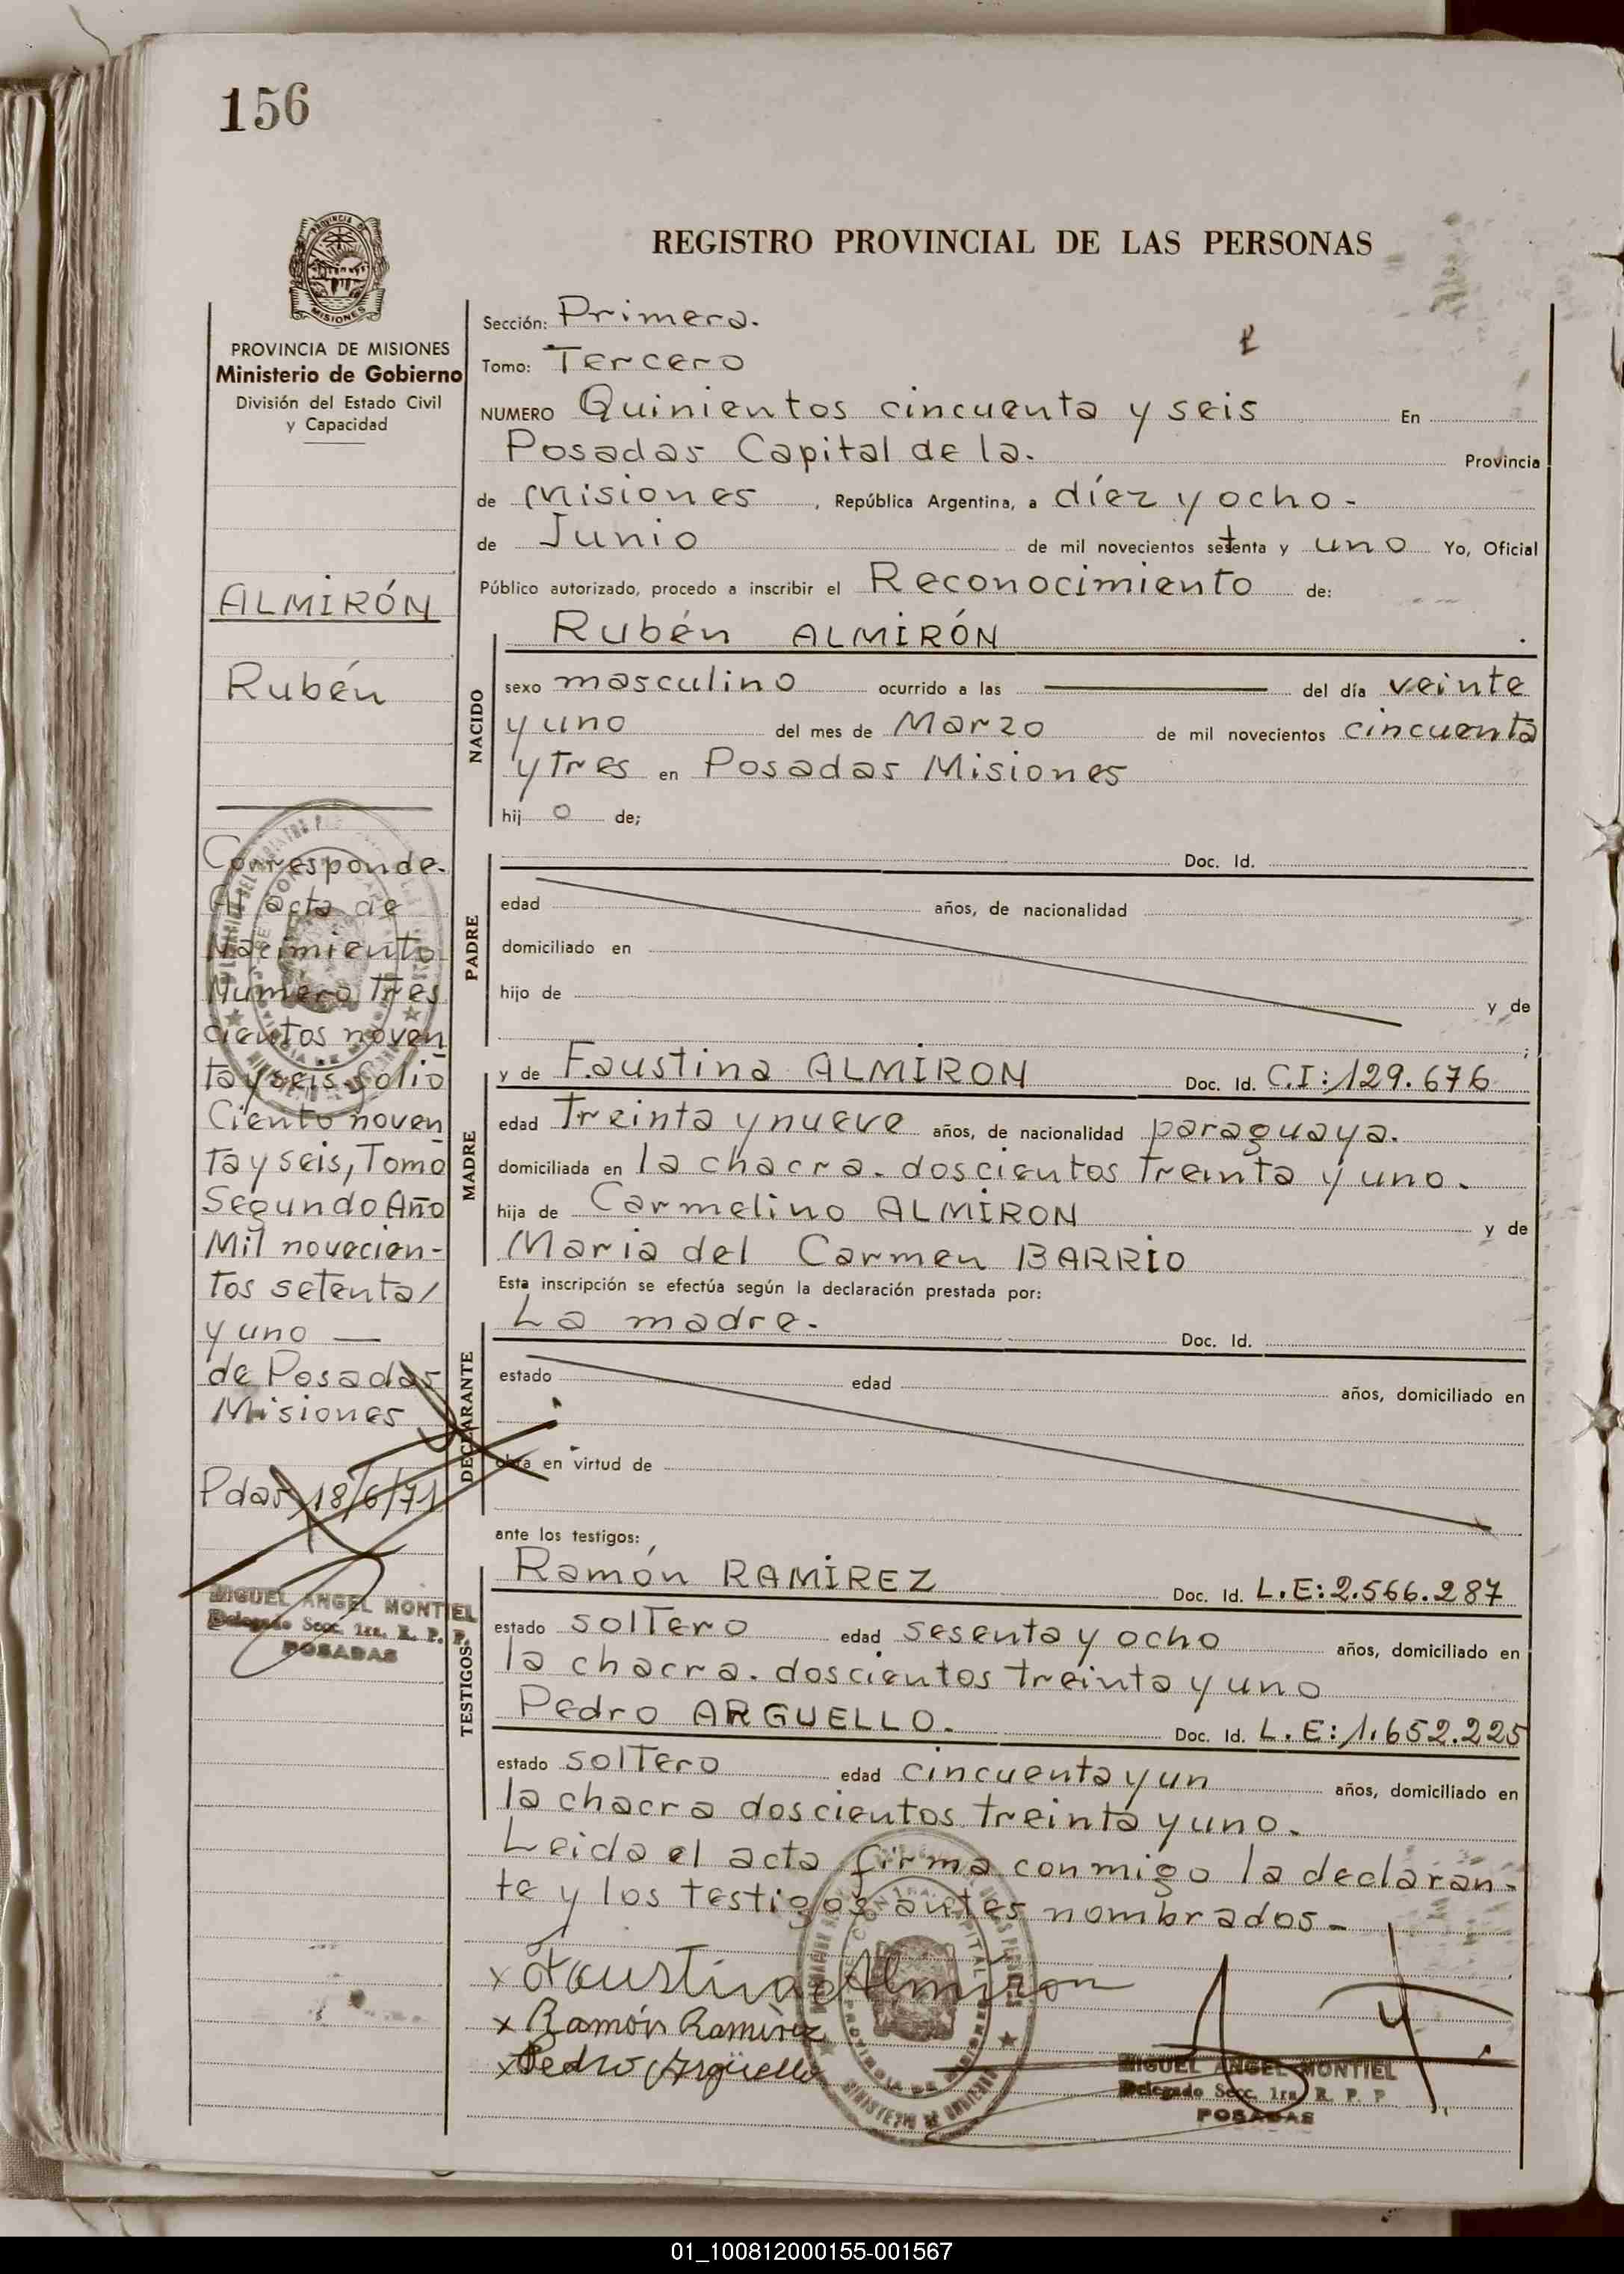 156
REGISTRO PROVINCIAL DE LAS PERSONAS
MISIONES
PROVINCIA DE MISIONES
Ministerio de Gobierno
División del Estado Civil
y Capacidad
ALMIRÓN
Rubén
Corresponde.
Al acta de
Nacimiento
Número Tres
cientos noven
ta y seis folio
Ciento noven
ta y seis, Tomo
Segundo Año
Mil novecien-
tos setenta/
y uno —
de Posadas
Misiones
Pdas 18/6/71
MIGUEL ANGEL MONTIEL
Delegado Secc. 1ra. R. P. P.
POSADAS
Sección: Primera.
Tomo: Tercero
NUMERO Quinientos cincuenta y seis En
Posadas Capital de la. Provincia
de Misiones, República Argentina, a díez y ocho -
de Junio de mil novecientos setenta y uno Yo, Oficial
Público autorizado, procedo a inscribir el Reconocimiento de:
NACIDO
Rubén ALMIRÓN
sexo masculino ocurrido a las — del día veinte
y uno del mes de Marzo de mil novecientos cincuenta
y Tres en Posadas Misiones
hij o de;
PADRE
Doc. Id.
edad años, de nacionalidad
domiciliado en
hijo de y de
;
MADRE
y de Faustina ALMIRON Doc. Id. C.I: 129.676
edad Treinta y nueve años, de nacionalidad paraguaya.
domiciliada en la chacra. doscientos Treinta y uno.
hija de Carmelino ALMIRON y de
Maria del Carmen BARRIO
Esta inscripción se efectúa según la declaración prestada por:
DECLARANTE
La madre. Doc. Id.
estado edad años, domiciliado en
obra en virtud de
ante los testigos:
TESTIGOS
Ramón RAMIREZ Doc. Id. L.E: 2.566.287
estado solTero edad sesenta y ocho años, domiciliado en
la chacra. doscientos Treinta y uno
Pedro ARGUELLO. Doc. Id. L.E: 1.652.225
estado solTero edad cincuenta y un años, domiciliado en
la chacra doscientos treinta y uno.
Leida el acta firma conmigo la declaran-
te y los testigos antes nombrados -
x Faustina Almiron
x Ramón Ramirez
x Pedro Argüello
MIGUEL ANGEL MONTIEL
Delegado Secc. 1ra. R. P. P.
POSADAS
01_100812000155-001567